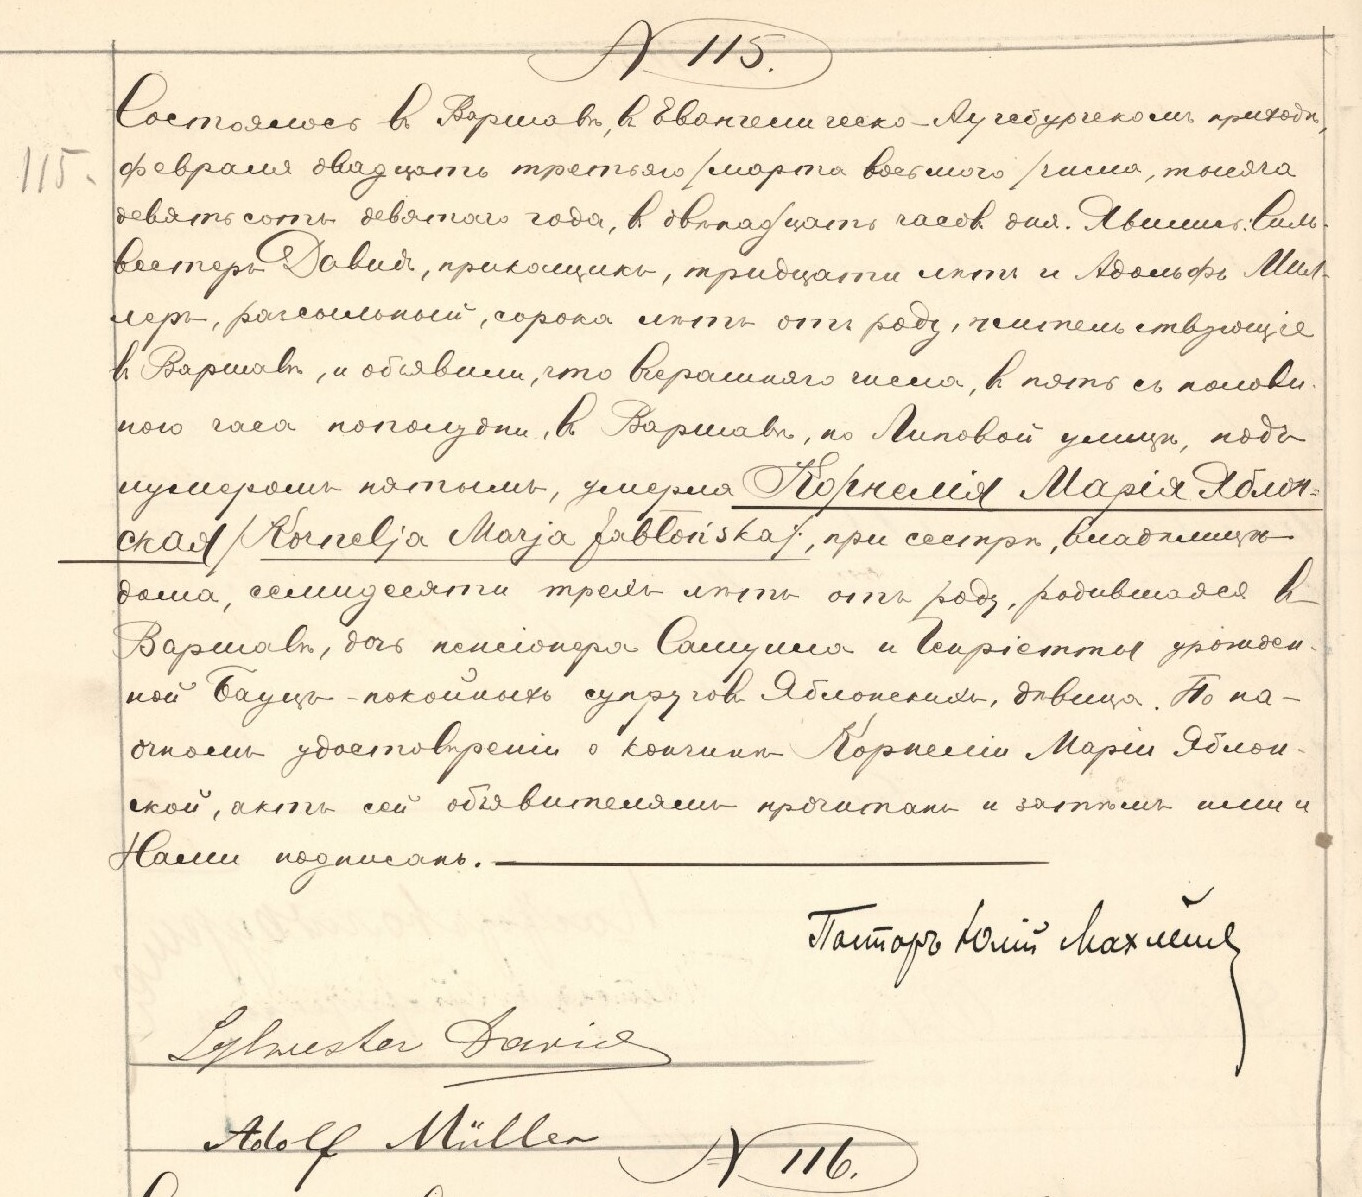 N 115.
Состоялось въ Варшавѣ, въ Евангелическо-Аугсбургскомъ приходѣ,
115.
февраля двадцать третьяго /марта восьмого/ числа, тысяча
девятьсотъ девятаго года, въ двѣнадцать часовъ дня. Явились: Силь-
вестеръ Давидъ, прикащикъ, тридцати лѣтъ и Адольфъ Мил-
леръ, разсыльный, сорока лѣтъ отъ роду, жительствующіе
въ Варшавѣ, и объявили, что вчерашняго числа, въ пять съ полови-
ною часа пополудни, въ Варшавѣ, по Липовой улицѣ, подъ
нумеромъ пятымъ, умерла Корнелія Марія Яблон-
ская /Kornelja Marja Jabłońska/, при сестрѣ, владѣлицѣ
дома, семидесяти трехъ лѣтъ отъ роду, родившаяся въ
Варшавѣ, дочь пенсіонера Самуила и Генріетты урожден-
ной Бауцъ - покойныхъ супруговъ Яблонскихъ, дѣвица. По на-
очномъ удостовѣреніи о кончинѣ Корнеліи Маріи Яблон-
ской, актъ сей объявителямъ прочитанъ и затѣмъ ими и
Нами подписанъ.
Пасторъ Юлій Махлейдъ
Sylwester Dawid
Adolf Müller
N 116.